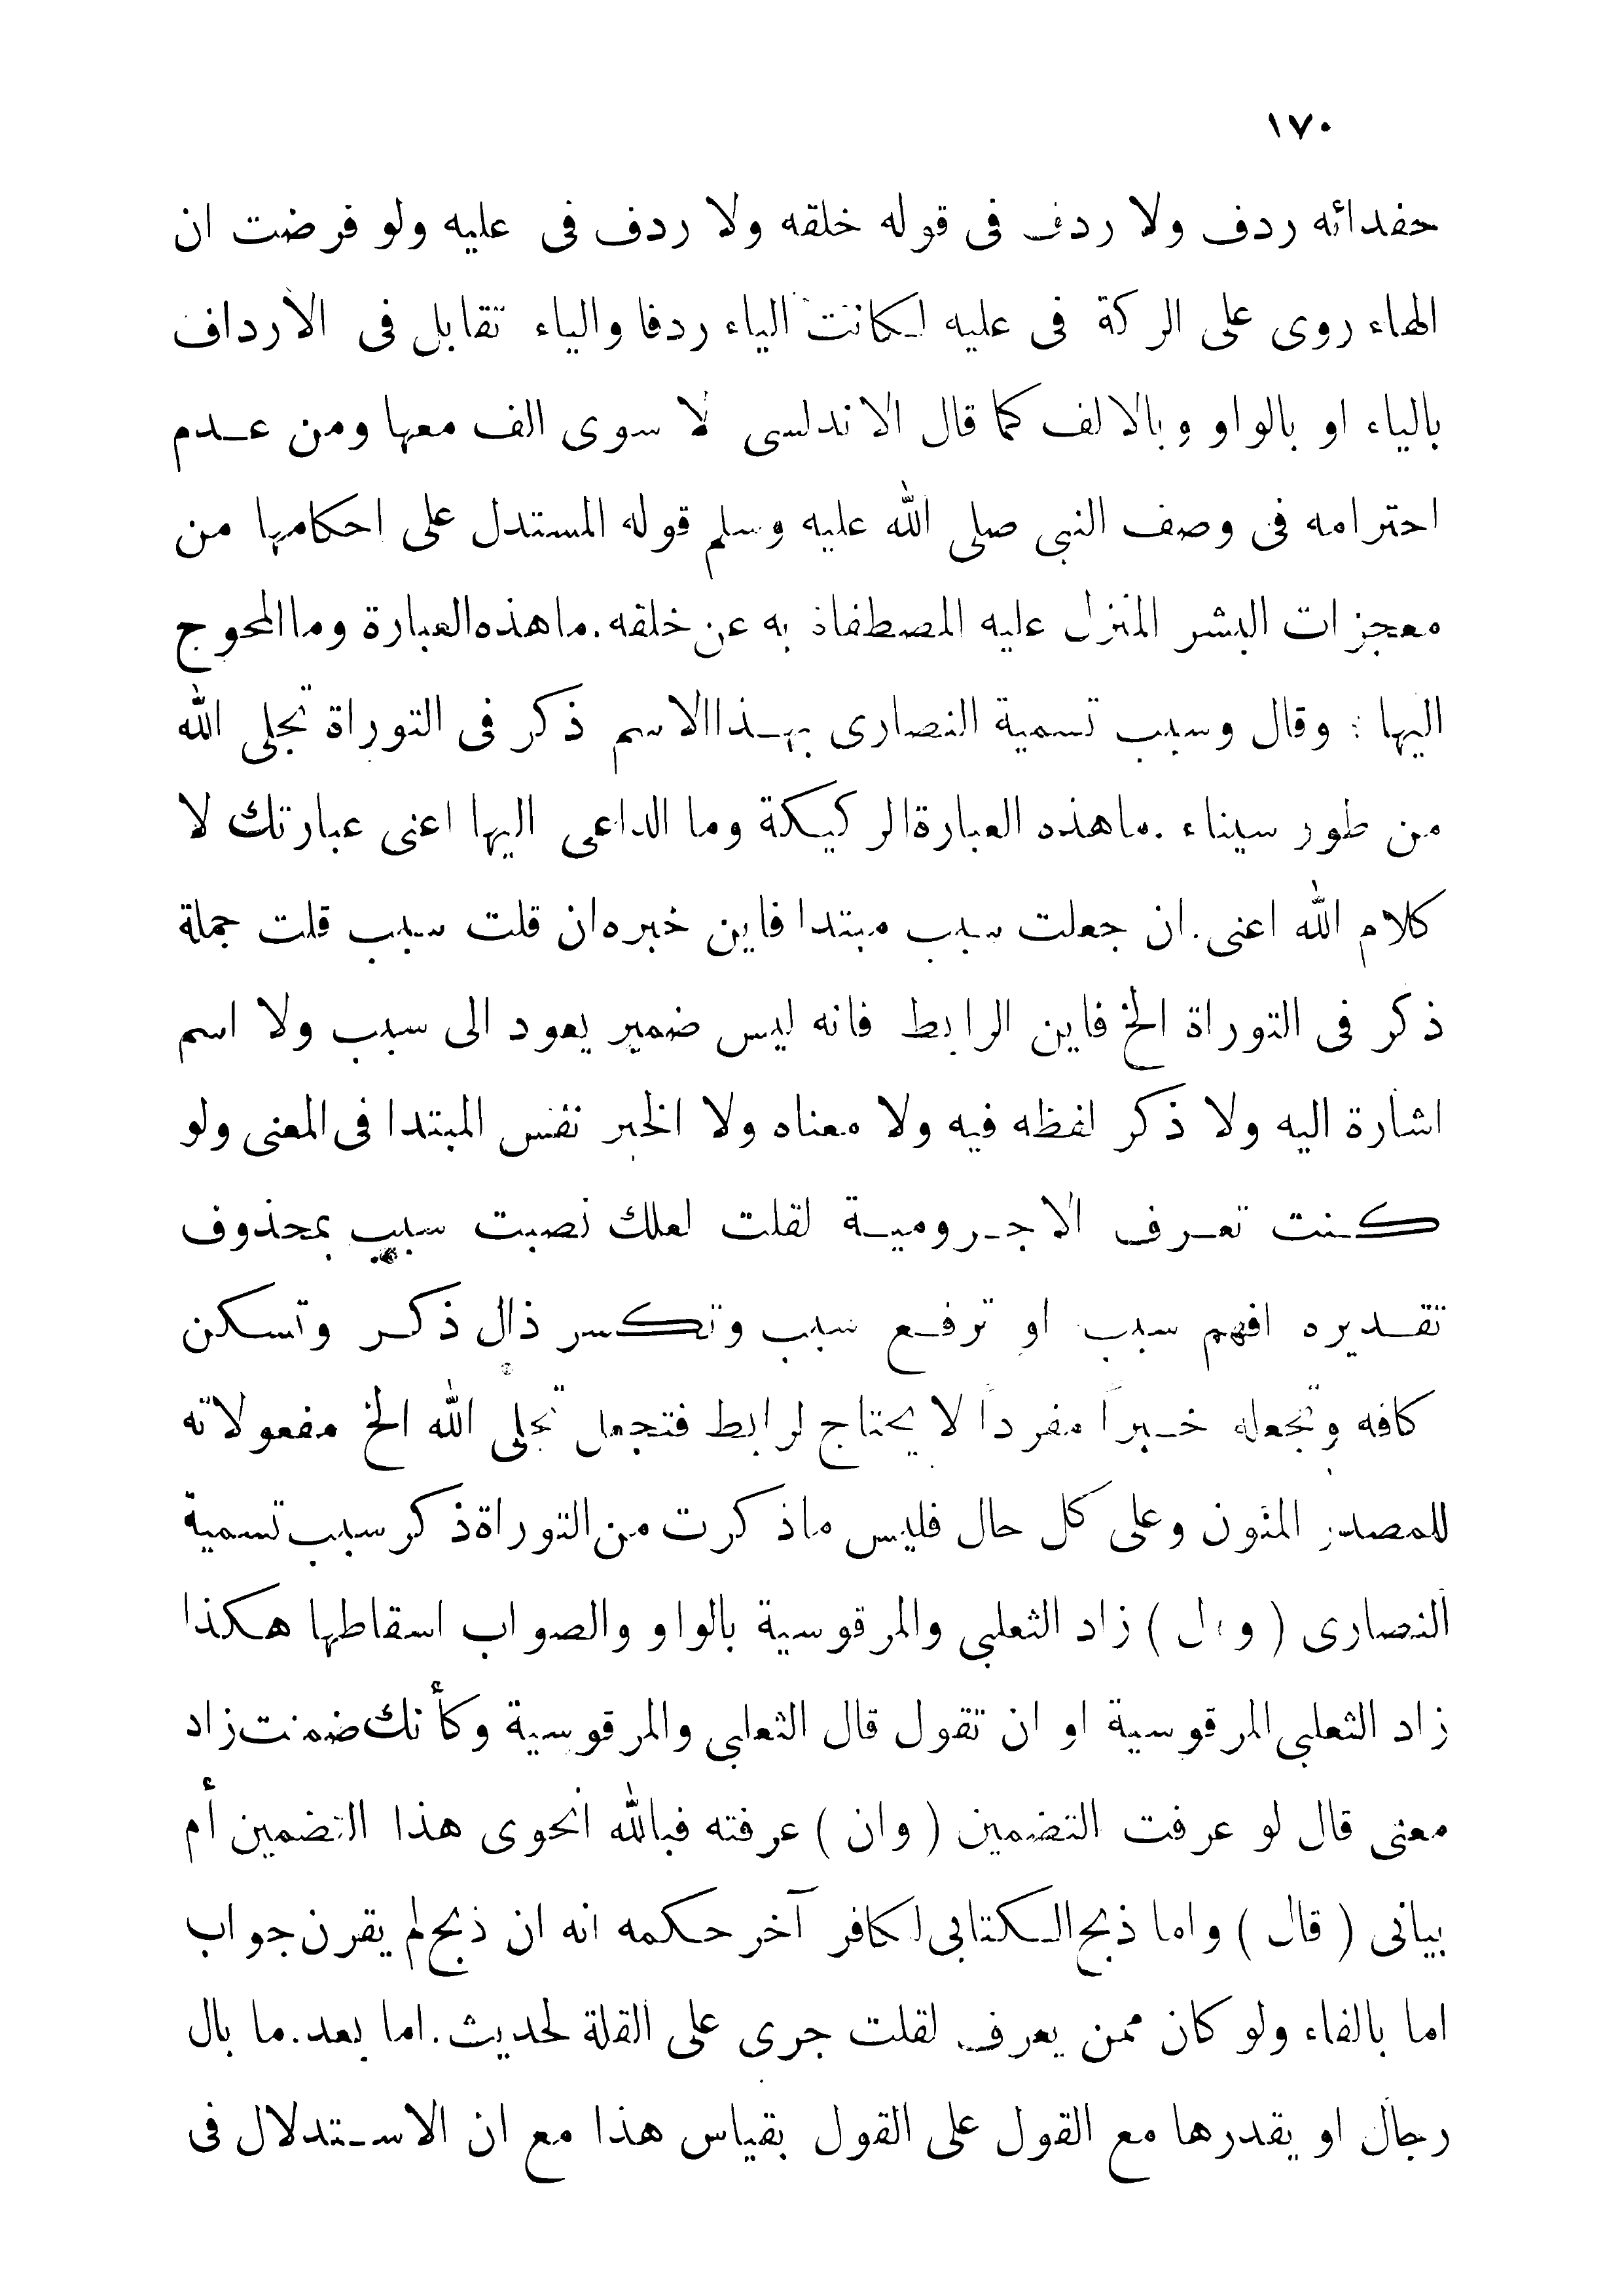 ١٧٠
حفدائه ردف ولا ردف فى قوله خلقه ولا ردف فى عليه ولو فرضت ان
الهاء روى على الركة فى عليه لكانت الياء ردفا والياء تقابل فى الارداف
بالياء او بالواو وبالالف كما قال الاندلسى لا سوى الف معها ومن عدم
احترامه فى وصف النبى صلى الله عليه وسلم قوله المستدل على احكامها من
معجزات البشر المنزل عليه المصطفاذ به عن خلقه.ماهذه العبارة وما المحوج
اليها : وقال وسبب تسمية النصارى بهذا الاسم ذكر فى التوراة تجلى الله
من طور سيناء .ماهذه العبارة الركيكة وما الداعى اليها اعنى عبارتك لا
كلام الله اعنى.ان جعلت سبب مبتدا فاين خبره ان قلت سبب قلت جملة
ذكر فى التوراة الخ فاين الرابط فانه ليس ضمير يعود الى سبب ولا اسم
اشارة اليه ولا ذكر لفظه فيه ولا معناه ولا الخبر نفس المبتدا فى المعنى ولو
كنت تعرف الاجرومية لقلت لعلك نصبت سبب بمحذوف
تقديره افهم سبب او ترفع سبب وتكسر ذال ذكر وتسكن
كافه وتجعله خبراً مفرداً لا يحتاج لرابط فتجعل تجلى الله الخ مفعولاته
للمصدر المنون وعلى كل حال فليس ماذكرت من التوراة ذكر سبب تسمية
النصارى ( و ل ) زاد الثعلبى والمرقوسية بالواو والصواب اسقاطها هكذا
زاد الثعلبى المرقوسية او ان تقول قال الثعلبى والمرقوسية وكأنك ضمنت زاد
معنى قال لو عرفت التضمين ( وان ) عرفته فبالله انحوى هذا التضمين أم
بيانى ( قال ) واما ذبح الكتابى لكافر آخر حكمه انه ان ذبح لم يقرن جواب
اما بالفاء ولو كان ممن يعرف لقلت جرى على القلة لحديث.اما بعد.ما بال
رجال او يقدرها مع القول على القول بقياس هذا مع ان الاستدلال فى